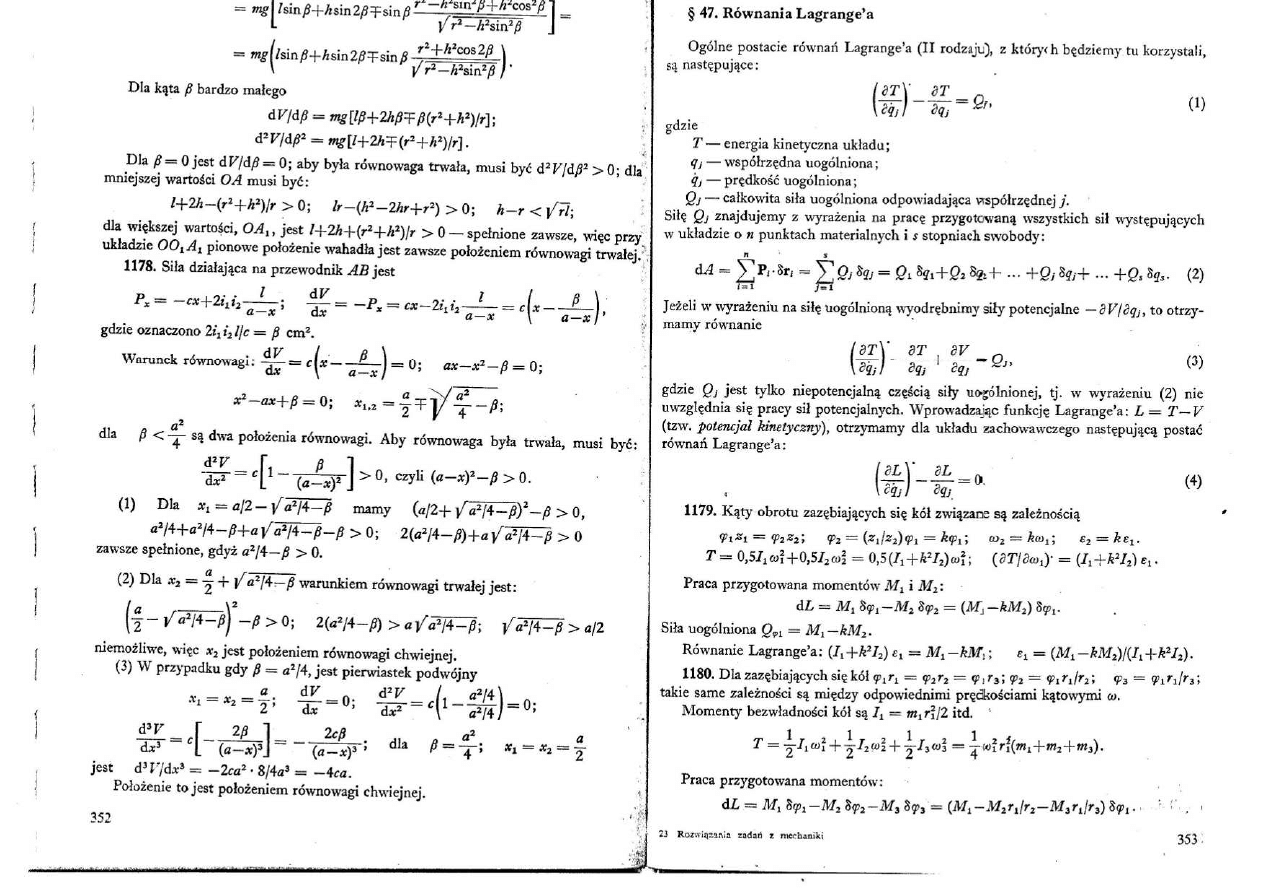 = mg[l sin β+h sin 2β∓sin β (r²—h²sin²β+h²cos²β)/√(r²—h²sin²β)] =
= mg(l sin β+h sin 2β∓sin β (r²+h²cos 2β)/√(r²—h²sin²β)).
Dla kąta β bardzo małego
dV/dβ = mg[lβ+2hβ∓β(r²+h²)/r];
d²V/dβ² = mg[l+2h∓(r²+h²)/r].
Dla β = 0 jest dV/dβ = 0; aby była równowaga trwała, musi być d²V/dβ² > 0; dla
mniejszej wartości OA musi być:
l+2h—(r²+h²)/r > 0; lr—(h²—2hr+r²) > 0; h—r < √rl;
dla większej wartości, OA₁, jest l+2h+(r²+h²)/r > 0 — spełnione zawsze, więc przy
układzie OO₁A₁ pionowe położenie wahadła jest zawsze położeniem równowagi trwałej.
1178. Siła działająca na przewodnik AB jest
Pₓ = —cx+2i₁i₂ l/(a—x); dV/dx = —Pₓ = cx—2i₁i₂ l/(a—x) = c(x— β/(a—x)),
gdzie oznaczono 2i₁i₂l/c = β cm².
Warunek równowagi: dV/dx = c(x— β/(a—x)) = 0; ax—x²—β = 0;
x²—ax+β = 0; x₁,₂ = a/2 ∓ √(a²/4 —β);
dla β < a²/4 są dwa położenia równowagi. Aby równowaga była trwała, musi być:
d²V/dx² = c[1— β/(a—x)²] > 0, czyli (a—x)²—β > 0.
(1) Dla x₁ = a/2—√(a²/4—β) mamy (a/2+√(a²/4—β))²—β > 0,
a²/4+a²/4—β+a√(a²/4—β)—β > 0; 2(a²/4—β)+a√(a²/4—β) > 0
zawsze spełnione, gdyż a²/4—β > 0.
(2) Dla x₂ = a/2 + √(a²/4—β) warunkiem równowagi trwałej jest:
(a/2 —√(a²/4—β))² —β > 0; 2(a²/4—β) > a√(a²/4—β); √(a²/4—β) > a/2
niemożliwe, więc x₂ jest położeniem równowagi chwiejnej.
(3) W przypadku gdy β = a²/4, jest pierwiastek podwójny
x₁ = x₂ = a/2; dV/dx = 0; d²V/dx² = c(1— (a²/4)/(a²/4)) = 0;
d³V/dx³ = c[— 2β/(a—x)³] = — 2cβ/(a—x)³; dla β = a²/4; x₁ = x₂ = a/2
jest d³V/dx³ = —2ca² · 8/4a³ = —4ca.
Położenie to jest położeniem równowagi chwiejnej.
352
§ 47. Równania Lagrange’a
Ogólne postacie równań Lagrange’a (II rodzaju), z których będziemy tu korzystali,
są następujące:
(∂T/∂q̇ⱼ)˙ — ∂T/∂qⱼ = Qⱼ, (1)
gdzie
T — energia kinetyczna układu;
qⱼ — współrzędna uogólniona;
q̇ⱼ — prędkość uogólniona;
Qⱼ — całkowita siła uogólniona odpowiadająca współrzędnej j.
Siłę Qⱼ znajdujemy z wyrażenia na pracę przygotowaną wszystkich sił występujących
w układzie o n punktach materialnych i s stopniach swobody:
dA = Σⁿᵢ₌₁ Pᵢ·δrᵢ = Σˢⱼ₌₁ Qⱼ δqⱼ = Q₁ δq₁+Q₂ δq₂+ ... +Qⱼ δqⱼ+ ... +Qₛ δqₛ. (2)
Jeżeli w wyrażeniu na siłę uogólnioną wyodrębnimy siły potencjalne —∂V/∂qⱼ, to otrzy-
mamy równanie
(∂T/∂q̇ⱼ)˙ — ∂T/∂qⱼ + ∂V/∂qⱼ = Qⱼ, (3)
gdzie Qⱼ jest tylko niepotencjalną częścią siły uogólnionej, tj. w wyrażeniu (2) nie
uwzględnia się pracy sił potencjalnych. Wprowadzając funkcję Lagrange’a: L = T—V
(tzw. potencjał kinetyczny), otrzymamy dla układu zachowawczego następującą postać
równań Lagrange’a:
(∂L/∂q̇ⱼ)˙ — ∂L/∂qⱼ = 0. (4)
1179. Kąty obrotu zazębiających się kół związane są zależnością
φ₁z₁ = φ₂z₂; φ₂ = (z₁/z₂)φ₁ = kφ₁; ω₂ = kω₁; ε₂ = kε₁.
T = 0,5I₁ω₁²+0,5I₂ω₂² = 0,5(I₁+k²I₂)ω₁²; (∂T/∂ω₁)˙ = (I₁+k²I₂)ε₁.
Praca przygotowana momentów M₁ i M₂:
dL = M₁ δφ₁—M₂ δφ₂ = (M₁—kM₂) δφ₁.
Siła uogólniona Qφ₁ = M₁—kM₂.
Równanie Lagrange’a: (I₁+k²I₂) ε₁ = M₁—kM₂; ε₁ = (M₁—kM₂)/(I₁+k²I₂).
1180. Dla zazębiających się kół φ₁r₁ = φ₂r₂ = φ₃r₃; φ₂ = φ₁r₁/r₂; φ₃ = φ₁r₁/r₃;
takie same zależności są między odpowiednimi prędkościami kątowymi ω.
Momenty bezwładności kół są I₁ = m₁r₁²/2 itd.
T = 1/2 I₁ω₁² + 1/2 I₂ω₂² + 1/2 I₃ω₃² = 1/4 ω₁²r₁²(m₁+m₂+m₃).
Praca przygotowana momentów:
dL = M₁ δφ₁—M₂ δφ₂—M₃ δφ₃ = (M₁—M₂r₁/r₂—M₃r₁/r₃) δφ₁.
23 Rozwiązania zadań z mechaniki
353